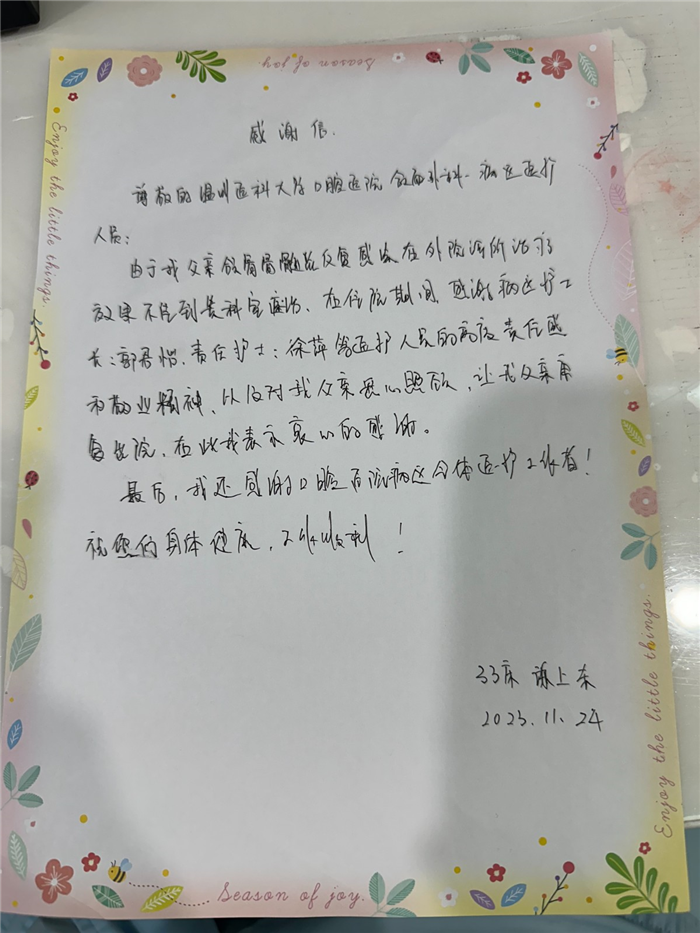 Season of joy.
Enjoy the little things.
感谢信.
尊敬的温州医科大学口腔医院颌面外科一病区医护
人员:
由于我父亲颌骨骨髓炎反复感染在外院诊所治疗
效果不佳到贵科室医治、在住院期间,感谢病区护士
长:郭君怡、责任护士:徐萍等医护人员的高度责任感
和敬业精神、以及对我父亲爱心照顾,让我父亲康
复出院,在此我表示衷心的感谢。
最后,我还感谢口腔医院病区全体医护工作者!
祝您们身体健康,工作顺利!
33床 上东
2023.11.24
Enjoy the little things.
Season of joy.